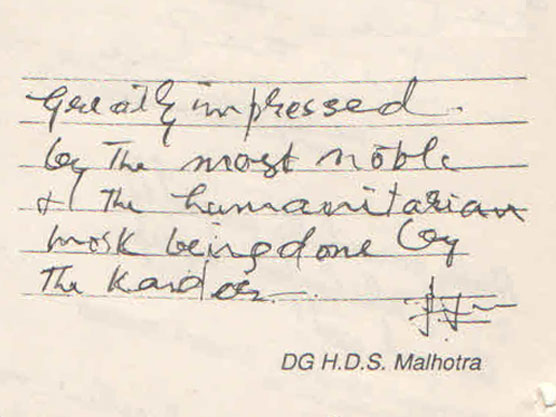 Greatly impressed.
by The most noble
& The humanitarian
work being done by
The
DG H.D.S. Malhotra